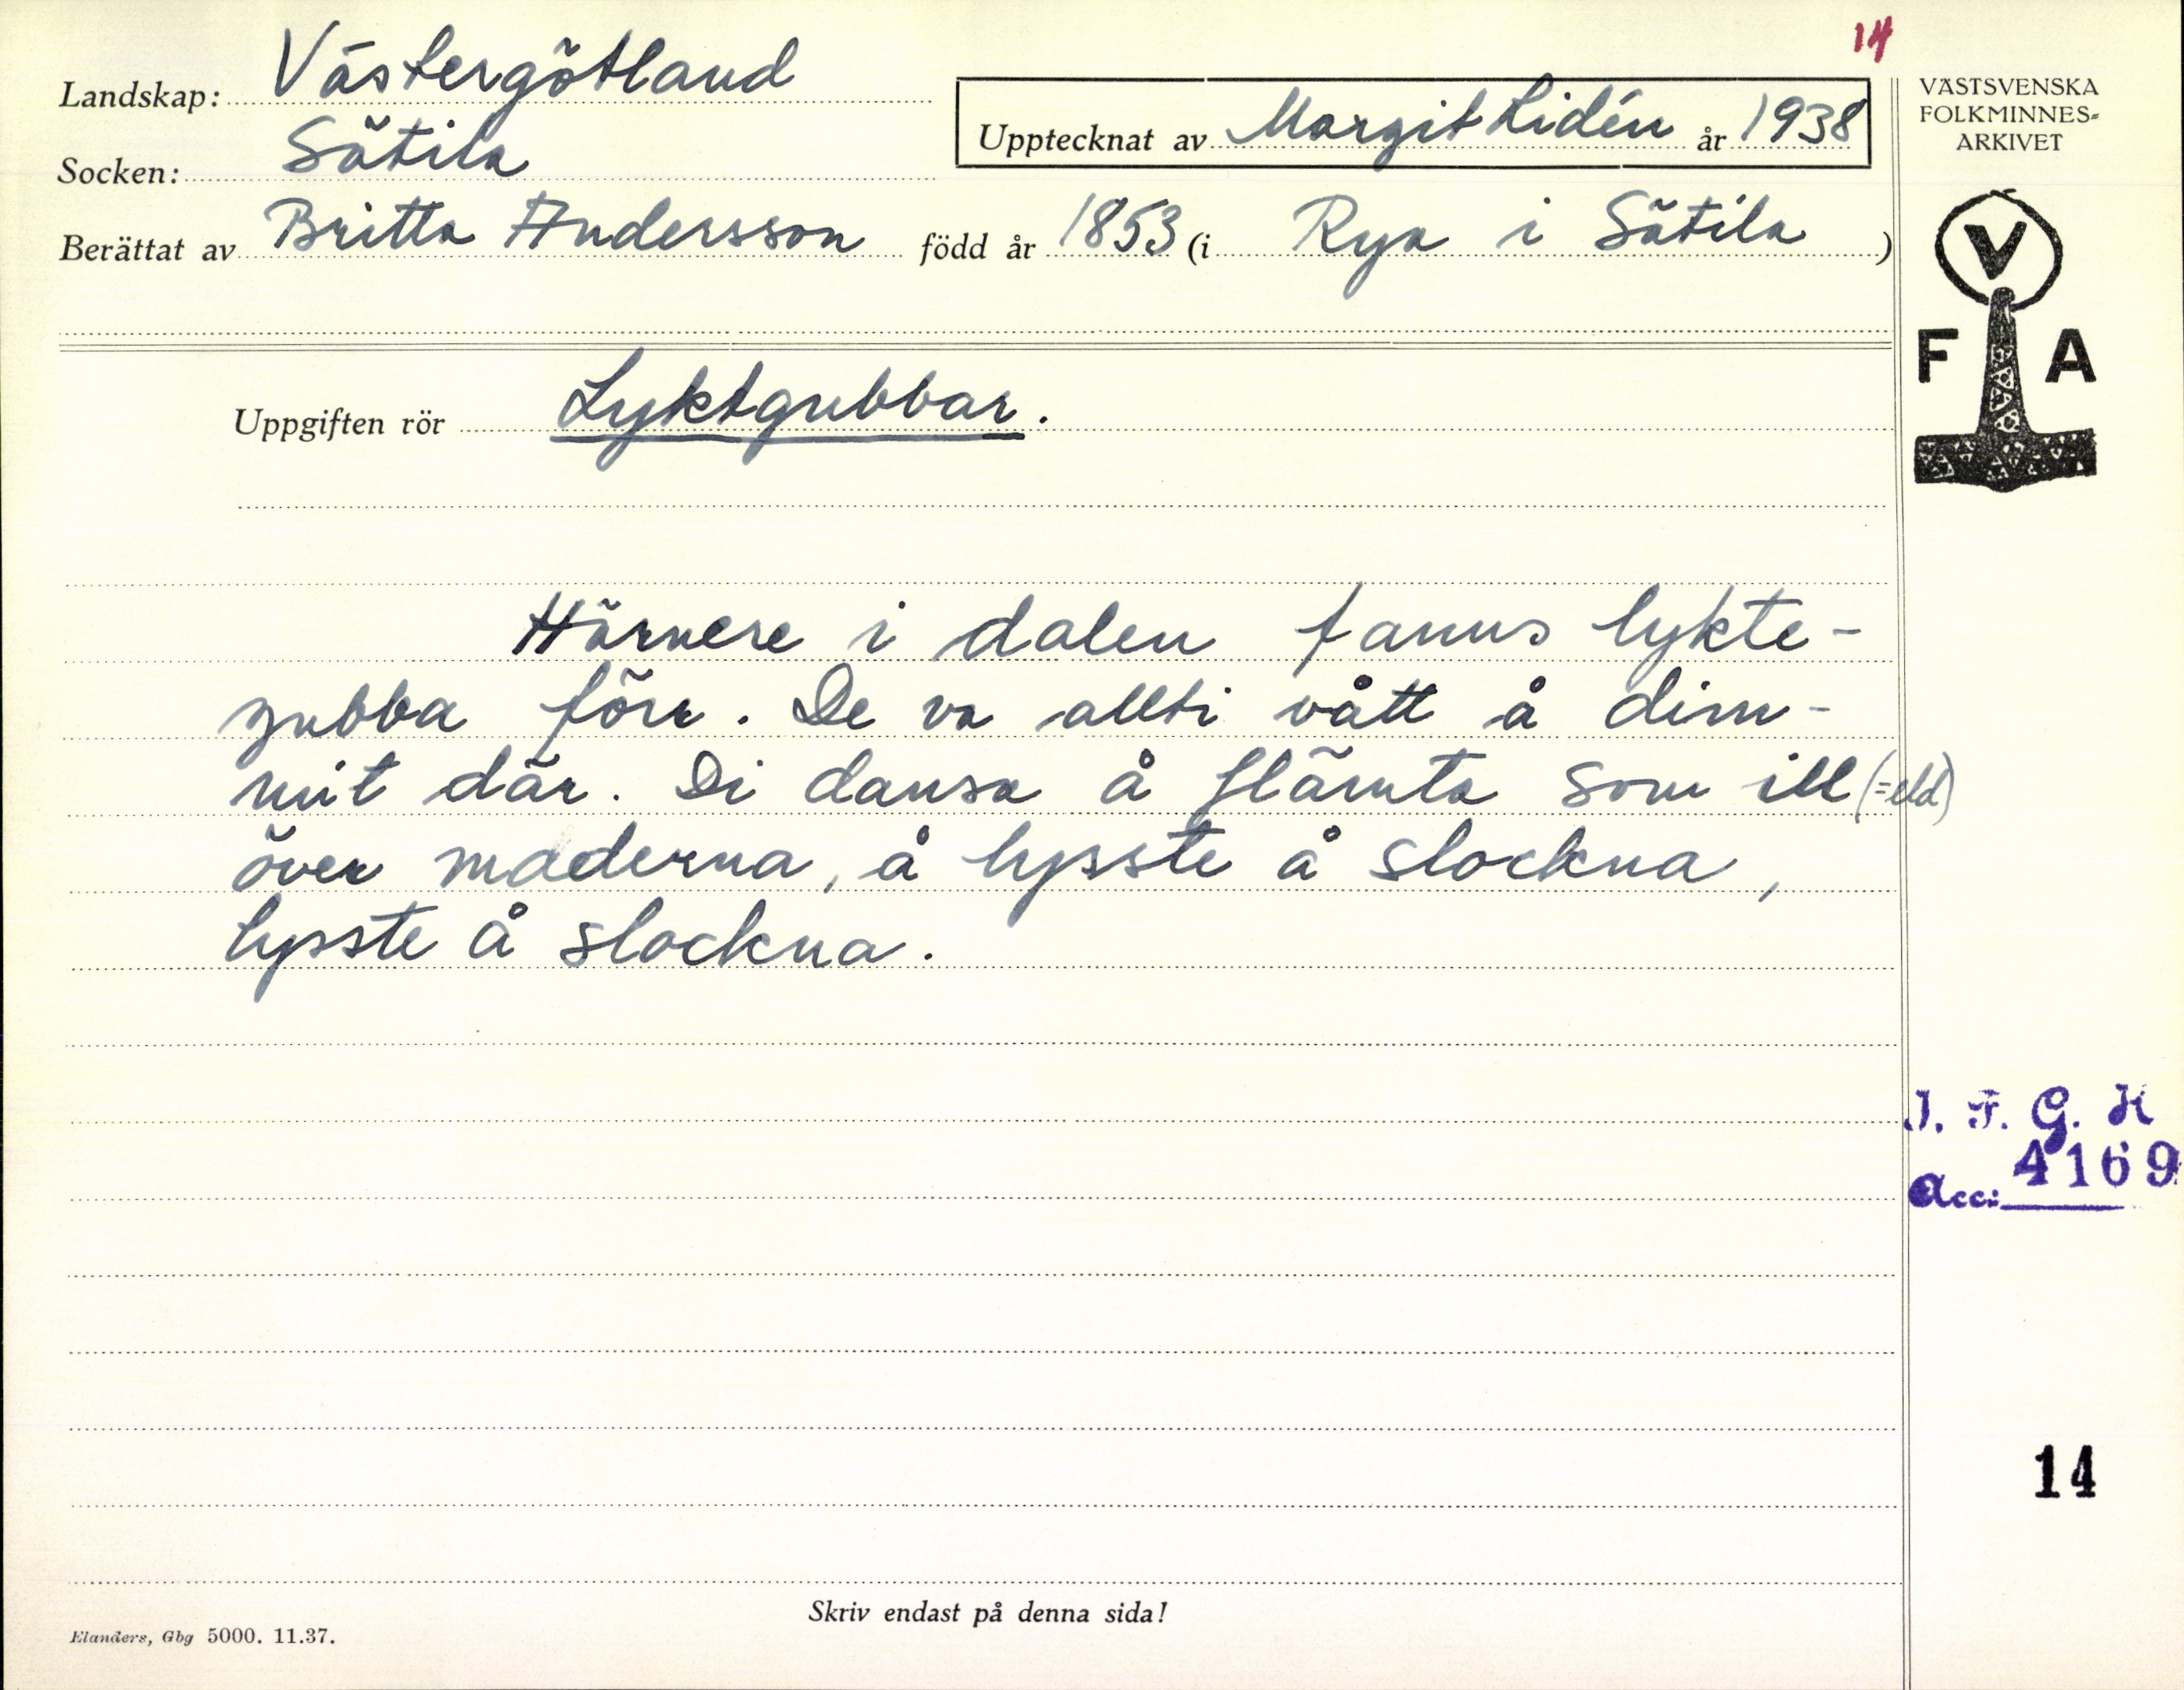 14
Landskap: Västergötland
Socken: Sätila
Upptecknat av Margit Lidén år 1938
Berättat av Britta Andersson född år 1853 (i Rya i Sätila )
VÄSTSVENSKA
FOLKMINNES-
ARKIVET
V
F A
Uppgiften rör Lyktgubbar.
Härnere i dalen fanns lykte-
gubba förr. De va allti vått å dim-
mit där. Di dansa å flämta som ill (=eld)
över maderna, å lysste å slockna,
lysste å slockna.
I. F. G. H
Acc: 4169
14
Skriv endast på denna sida!
Elanders, Gbg 5000. 11.37.